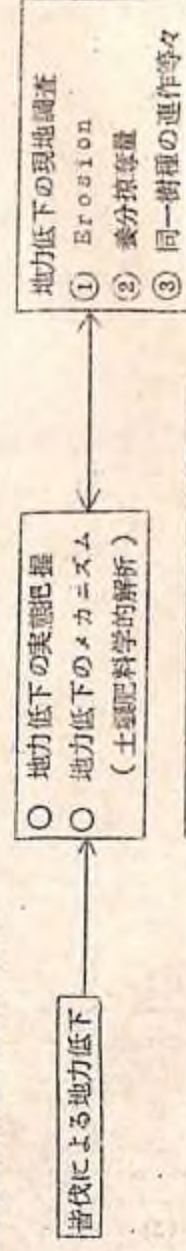 皆伐による地力低下
○ 地力低下の実態把握
○ 地力低下のメカニズム
(土壌肥料学的解析)
地力低下の現地調査
① Erosion
② 養分掠奪量
③ 同一樹種の連作等々